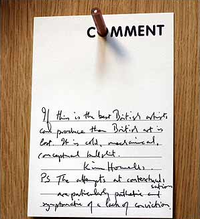 COMMENT
If this is the best British artists
can produce then British art is
lost. It is cold, mechanical,
conceptual bullshit.
Kim Howells.
P.S. The attempts at contextuali-
sations
are particularly pathetic and
symptomatic of a lack of conviction